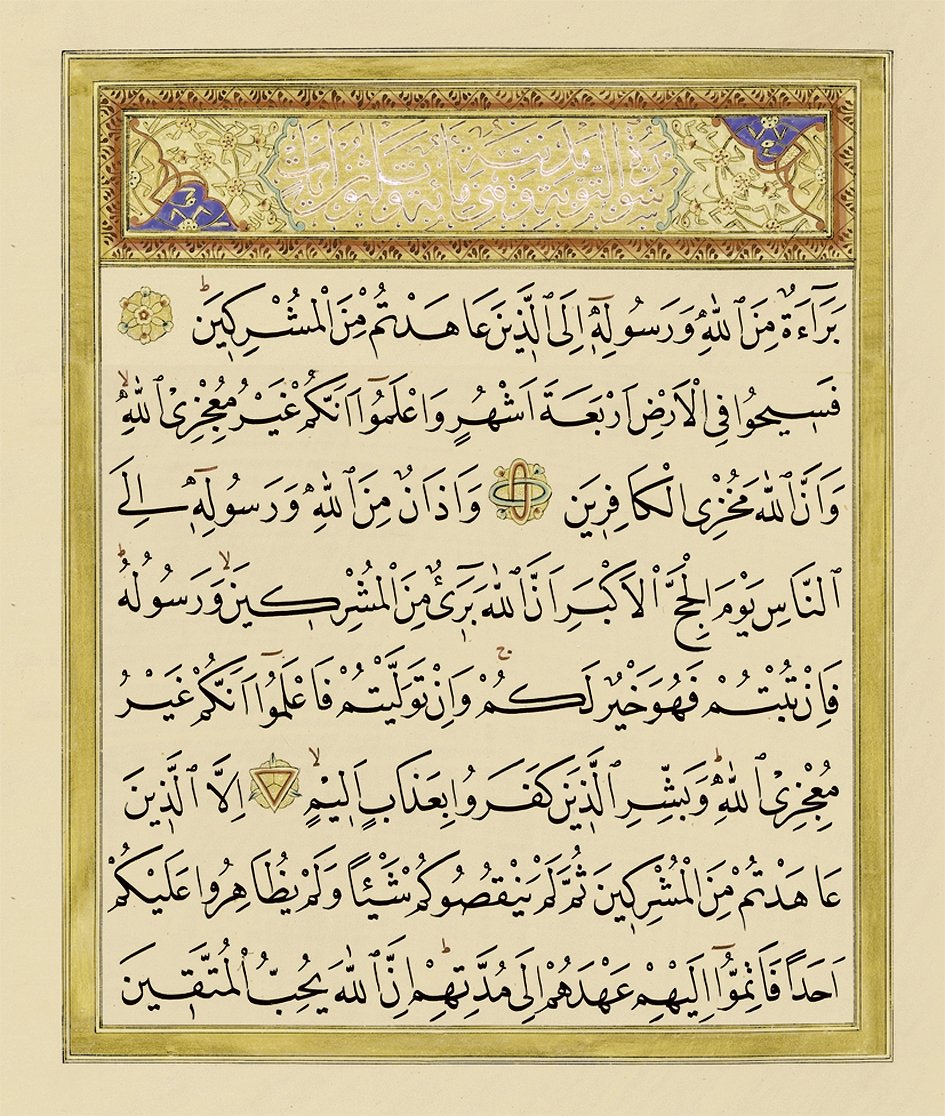 سورة التوبة مدنية وهي مائة وثلثون آيات
بَرَآءَةٌ مِنَ اللّٰهِ وَرَسُولِهٖٓ اِلَى الَّذٖينَ عَاهَدْتُمْ مِنَ الْمُشْرِكٖينَ ط
فَسٖيحُوا فِي الْاَرْضِ اَرْبَعَةَ اَشْهُرٍ وَاعْلَمُٓوا اَنَّكُمْ غَيْرُ مُعْجِزِي اللّٰهِ لا
وَاَنَّ اللّٰهَ مُخْزِي الْكَافِرٖينَ وَاَذَانٌ مِنَ اللّٰهِ وَرَسُولِهٖٓ اِلَى
النَّاسِ يَوْمَ الْحَجِّ الْاَكْبَرِ اَنَّ اللّٰهَ بَرٖٓيءٌ مِنَ الْمُشْرِكٖينَ لا وَرَسُولُهُ ط
فَاِنْ تُبْتُمْ فَهُوَ خَيْرٌ لَكُمْ ج وَاِنْ تَوَلَّيْتُمْ فَاعْلَمُٓوا اَنَّكُمْ غَيْرُ
مُعْجِزِي اللّٰهِ ط وَبَشِّرِ الَّذٖينَ كَفَرُوا بِعَذَابٍ اَلٖيمٍ لا اِلَّا الَّذٖينَ
عَاهَدْتُمْ مِنَ الْمُشْرِكٖينَ ثُمَّ لَمْ يَنْقُصُوكُمْ شَيْـًٔا وَلَمْ يُظَاهِرُوا عَلَيْكُمْ
اَحَدًا فَاَتِمُّٓوا اِلَيْهِمْ عَهْدَهُمْ اِلٰى مُدَّتِهِمْ ط اِنَّ اللّٰهَ يُحِبُّ الْمُتَّقٖينَ